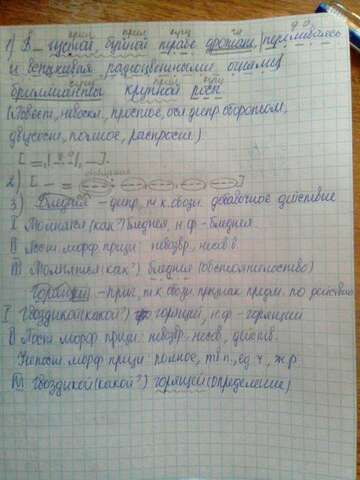 прил. прил. сущ. гл. д.о.
1) В густой, буйной траве дрожали, переливаясь
и вспыхивая радиоцветными огнями,
прил. сущ.
бриллианты крупной росы
(Повест., невоскл., простое, осл. деепр. оборотом,
двусост., полное, распростр.)
[ =, |Х.Х.|, _ ].
2) [ _ =
3) Бледнея - деепр., т.к. обозн. добавочное действие
I Томился (как?) бледнея, н.ф. - бледнея.
II Пост. морф. призн.: невозвр., несов. в.
III Томился (как?) бледнея (обстоятельство)
Горящей - прич., т.к. обозн. признак предм. по действию
I Гвоздикой (какой?) горящей, н.ф. - горящий
II Пост. морф. призн.: невозвр., несов., действ.
Непост. морф. призн.: полное, тв.п., ед.ч., ж.р.
III Гвоздикой (какой?) горящей (определение)